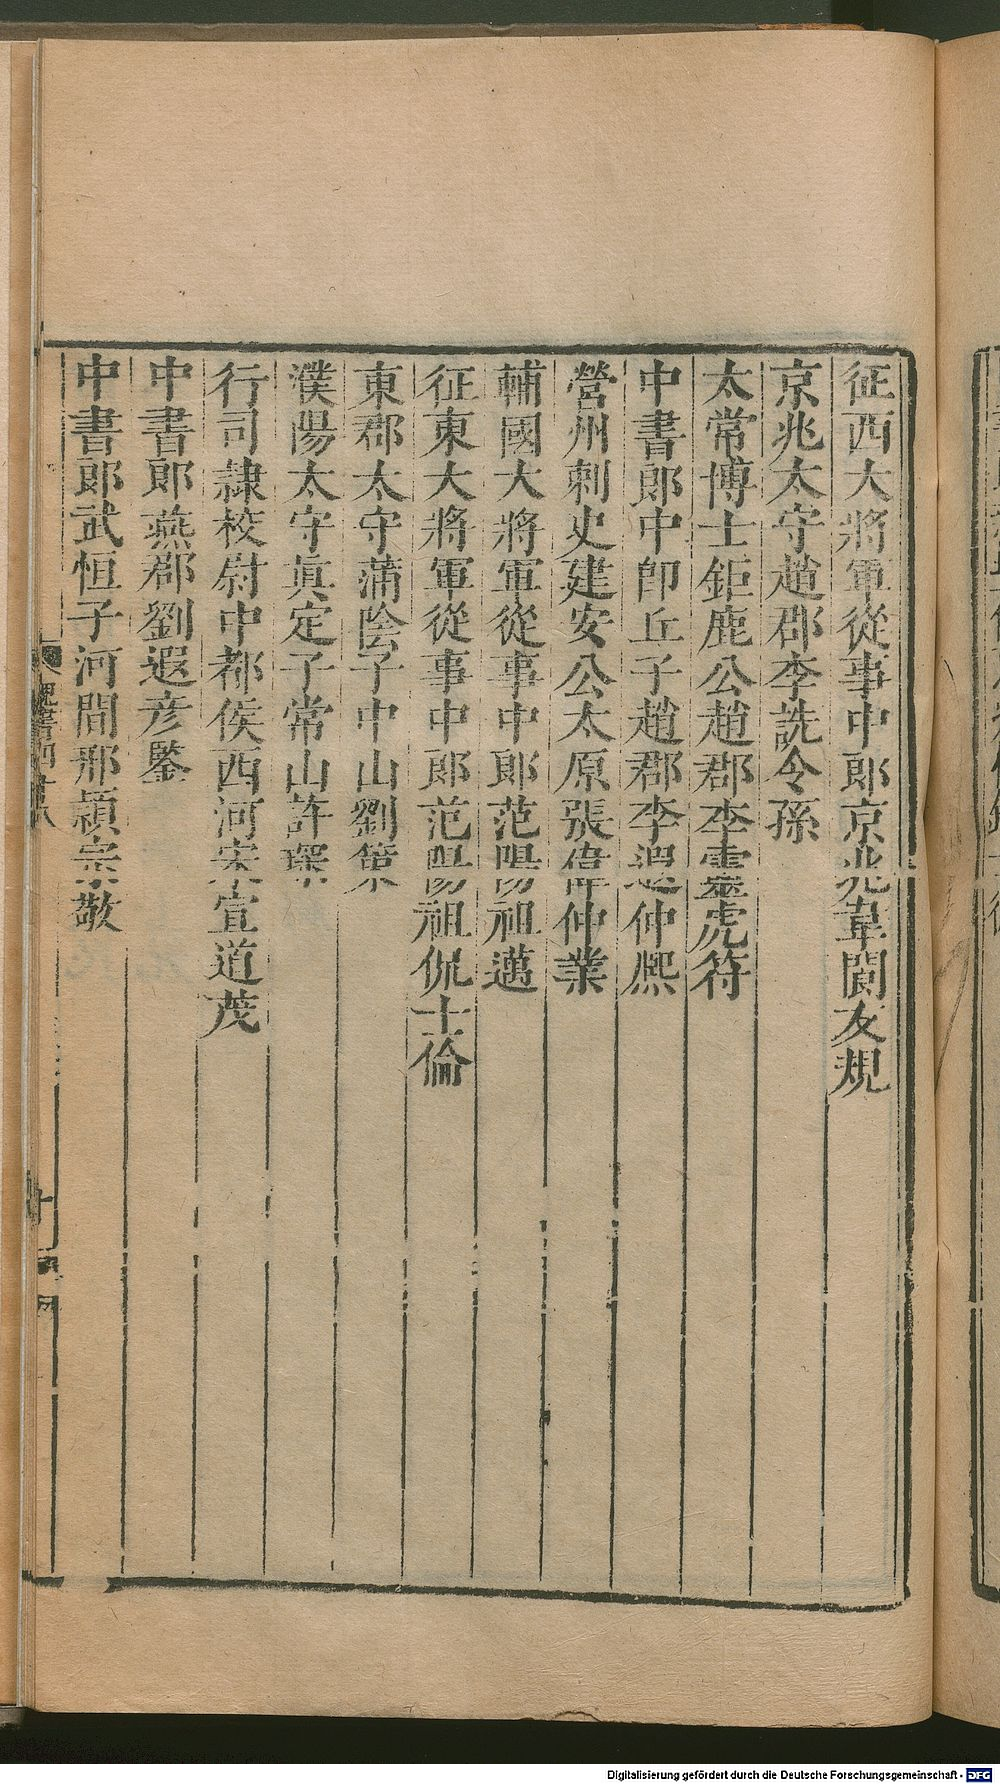 征西大將軍從事中郎京兆韋閬友規
京兆太守趙郡李詵令孫
太常博士鉅鹿公趙郡李靈虎符
中書郎中卽丘子趙郡李遐仲熙
營州刺史建安公太原張偉仲業
輔國大將軍從事中郎范陽祖邁
征東大將軍從事中郎范陽祖侃士倫
東郡太守蒲陰子中山劉策
濮陽太守眞定子常山許琛
行司隷校尉中都侯西河宋宣道茂
中書郎燕郡劉遐彦鑒
中書郎武恒子河間邢潁宗敬
魏書四十八
Digitalisierung gefördert durch die Deutsche Forschungsgemeinschaft - DFG